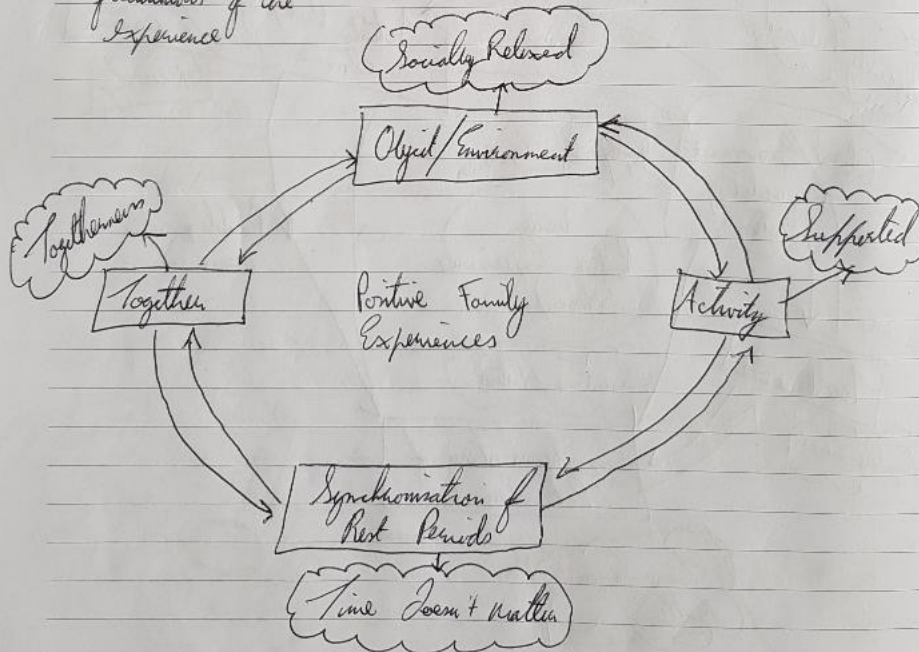 of the
experience
Socially Relaxed
Object/Environment
Togetherness
Supported
Together
Positive Family
Experiences
Activity
Synchronisation of
Rest Periods
Time Doesn't matter